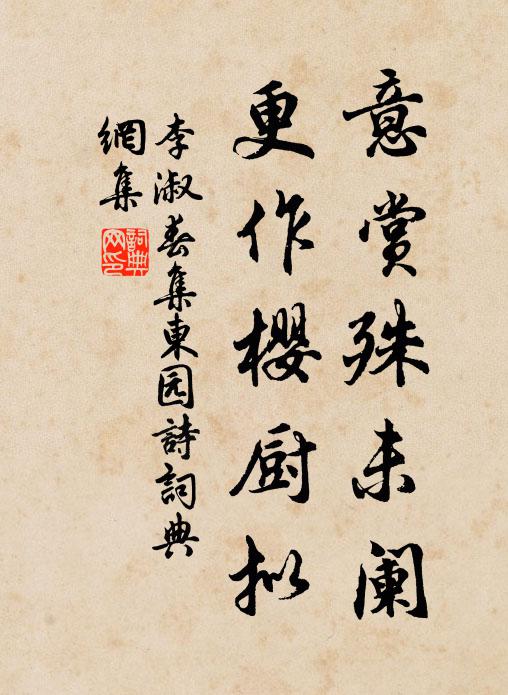 意赏殊未阑
更作櫻厨拟
李淑春集東园詩詞典
網集
詞典
网印